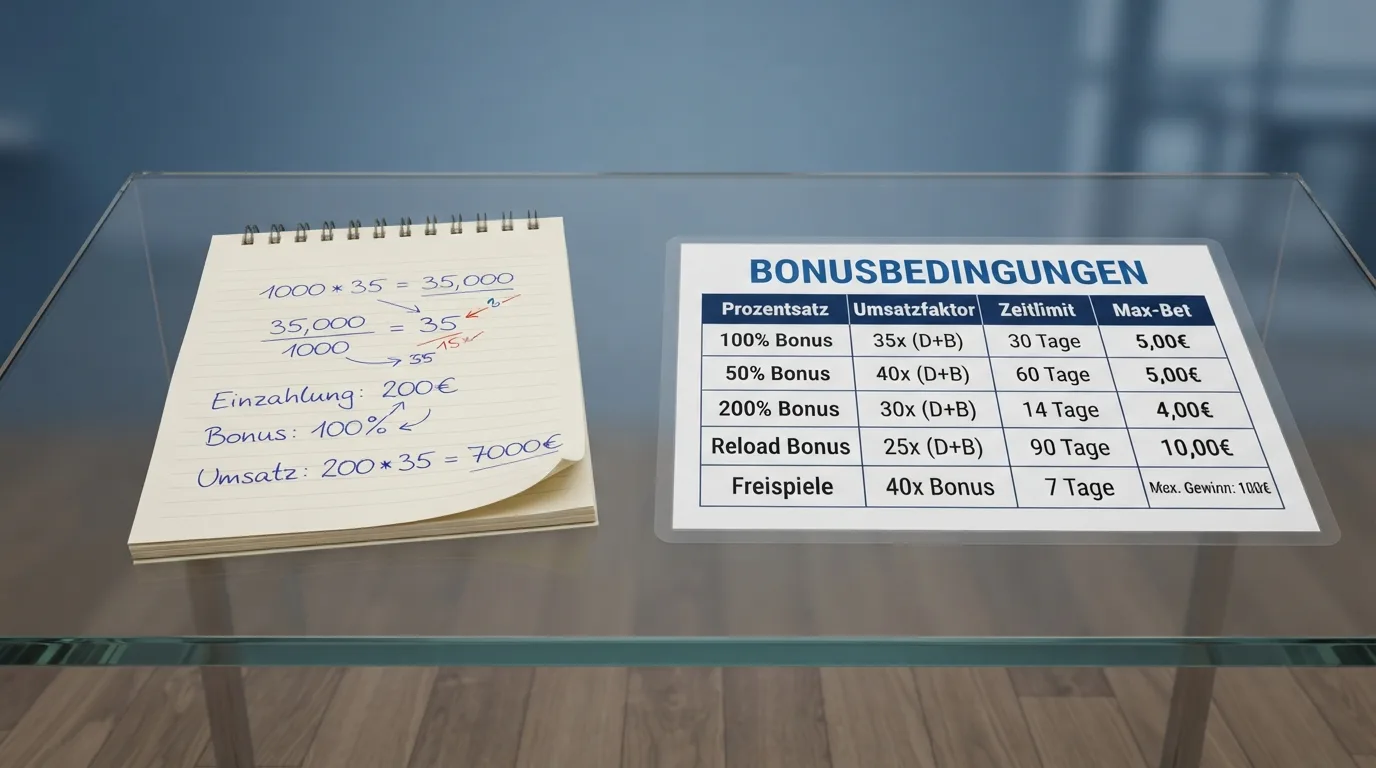 1000 * 35 = 35,000
35,000 / 1000 = 35
15x
35
Einzahlung: 200€
Bonus: 100%
Umsatz: 200 * 35 = 7000€
BONUSBEDINGUNGEN
Prozentsatz Umsatzfaktor Zeitlimit Max-Bet
100% Bonus 35x (D+B) 30 Tage 5,00€
50% Bonus 40x (D+B) 60 Tage 5,00€
200% Bonus 30x (D+B) 14 Tage 4,00€
Reload Bonus 25x (D+B) 90 Tage 10,00€
Freispiele 40x Bonus 7 Tage Max. Gewinn: